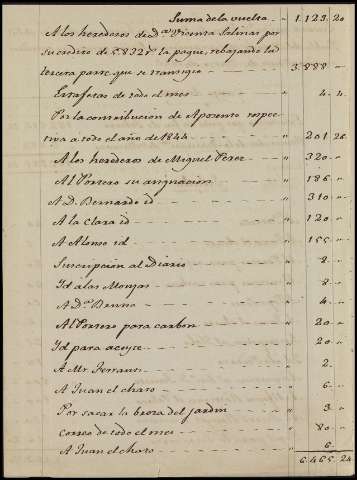 Suma de la vuelta " 1.123. 20
A los herederos de d.ª Vicenta Salinas por
su credito de 5.832 r.s la pague, rebajando la
tercera parte que se transigio " 3.888 —
Estafetas de todo el mes " 4. 4.
Por la contribucion de Aposento respec-
tiva a todo el año de 1844 " 201 26.
A los herederos de Miguel Perez " 320 —
Al Portero su asignacion " 186 —
A D. Bernardo id " 310 —
A la Clara id " 120 —
A Alonso id " 155 —
Suscripcion al Diario " 8 —
Yd a las Monjas " 8 —
A D.ª Benna " 4 —
Al Portero para carbon " 20 —
Yd para aceyte " 20 —
A Mr. Ferrant " 2.
A Juan el charo " 6 —
Por sacar la broza del jardin " 3
Correo de todo el mes " 80 —
A Juan el charo " 6
6.465. 24